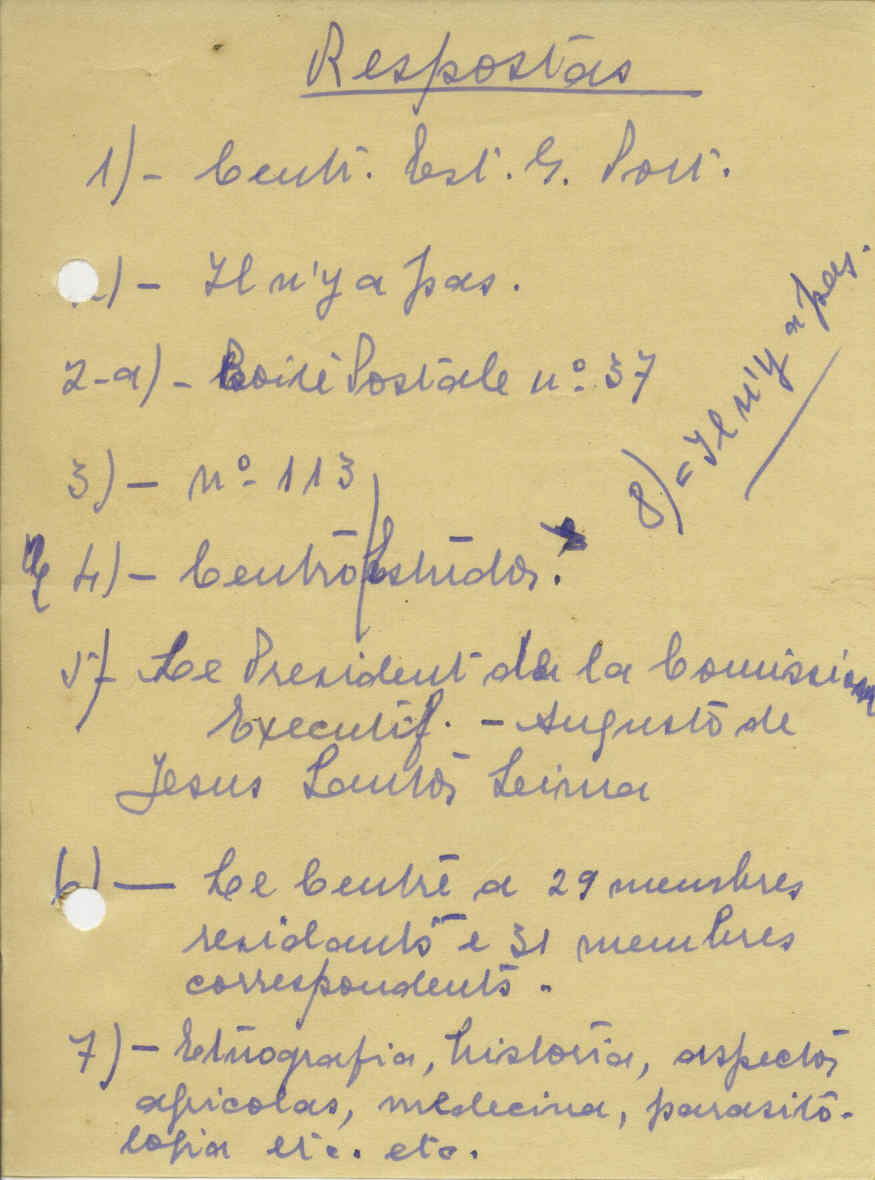 Respostas
1) - Centr. Est. G. Port.
2) - Il n'y a pas.
2-a) - Boite Postale nº 37
3) - nº 113
4) - Centro Estudos.
5) - Le President de la Comission
Executif. - Augusto de
Jesus Santos Leima
6) — Le Centre a 29 membres
residants e 31 membres
correspondents.
7) - Etnografia, historia, aspectos
agricolas, medecina, parasito-
logia etc. etc.
8) = Il n'y a pas.